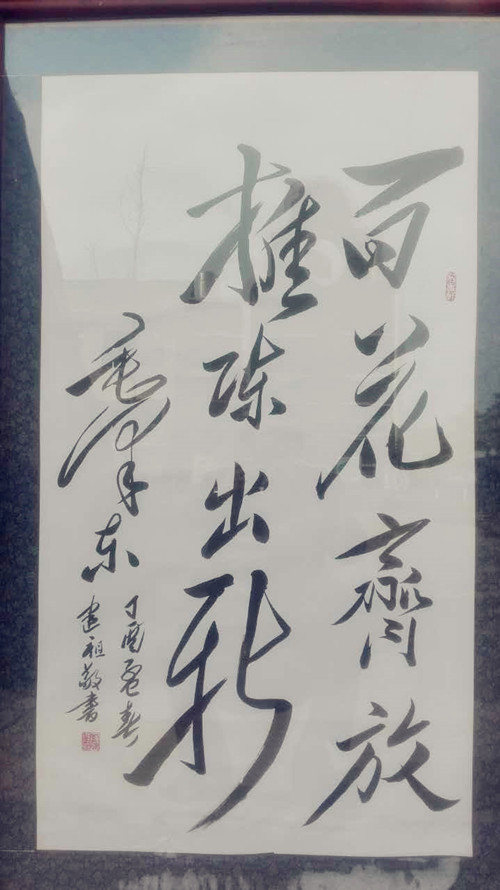 百花齊放
推陈出新
毛泽东
丁酉春
建祖敬書